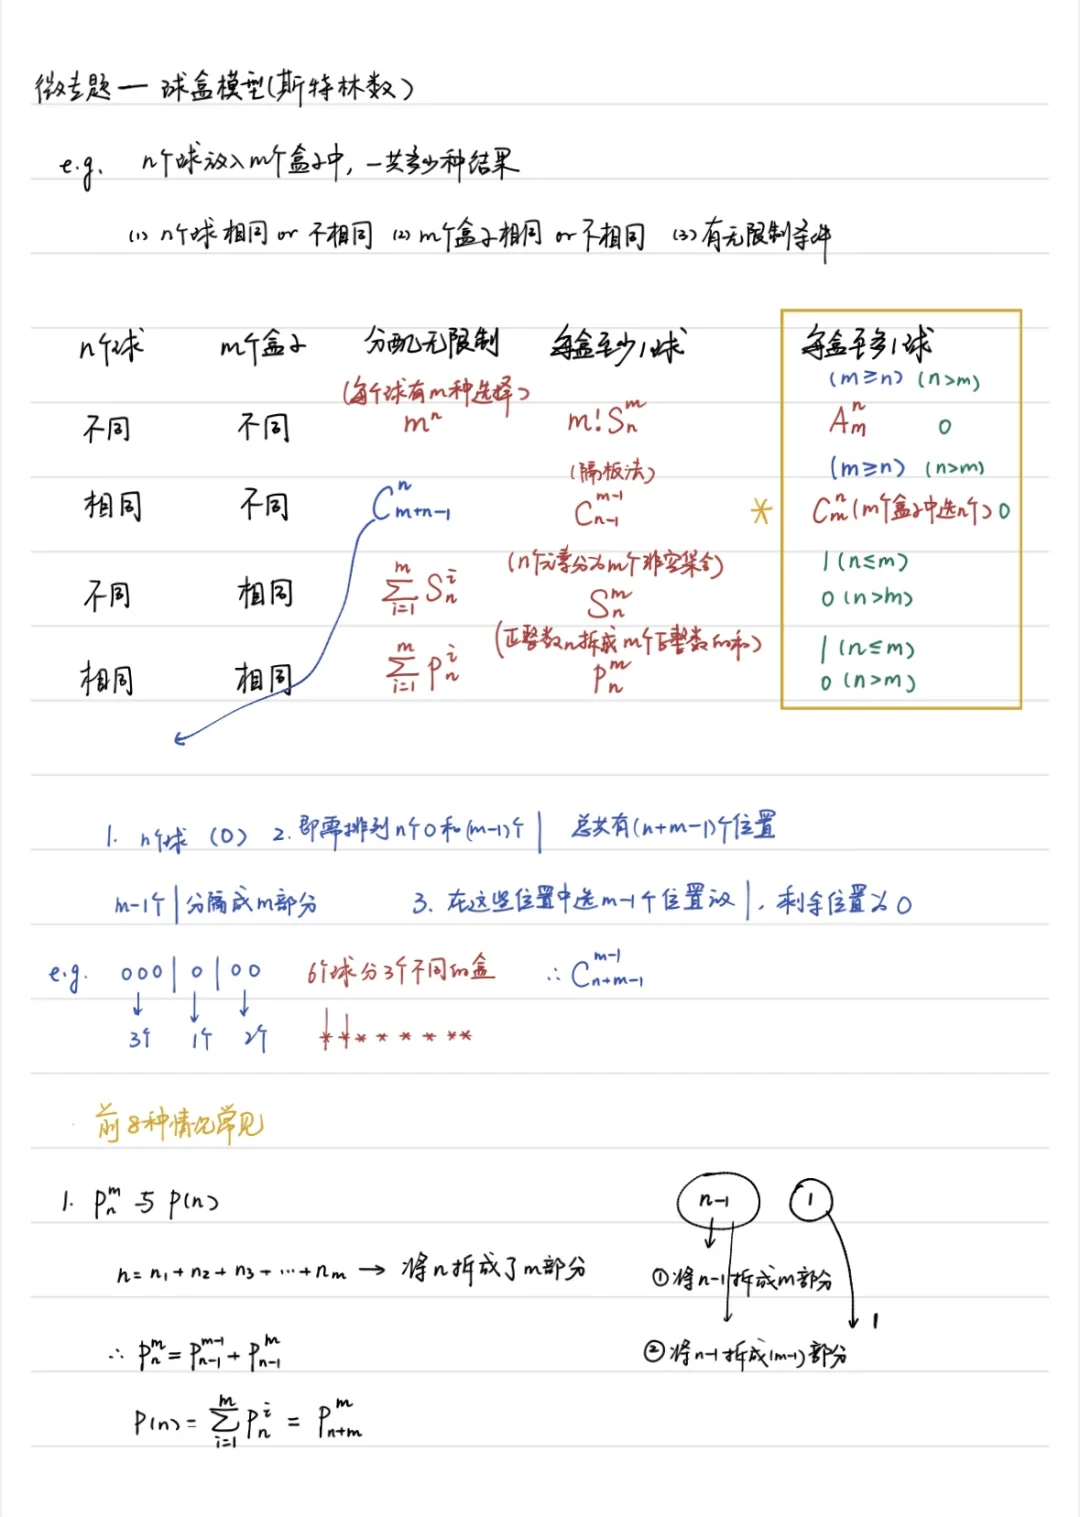 微专题一 球盒模型(斯特林数)
e.g. n个球放入m个盒子中,一共多少种结果
(1) n个球相同 or 不相同 (2) m个盒子相同 or 不相同 (3) 有无限制条件
n个球 m个盒子 分配无限制 每盒至少1球 每盒至多1球
(每个球有m种选择) (m≥n) (n>m)
不同 不同 m^n m!S_n^m A_m^n 0
(隔板法) (m≥n) (n>m)
相同 不同 C_{m+n-1}^n C_{n-1}^{m-1} * C_m^n(m个盒子中选n个) 0
(n个元素分为m个非空集合) 1 (n≤m)
不同 相同 \sum_{i=1}^m S_n^i S_n^m 0 (n>m)
(正整数n拆成m个正整数的和) 1 (n≤m)
相同 相同 \sum_{i=1}^m P_n^i P_n^m 0 (n>m)
1. n个球 (0) 2. 即需排列n个0和(m-1)个| 总共有(n+m-1)个位置
m-1个|分隔成m部分 3. 在这些位置中选m-1个位置放|, 剩余位置为0
e.g. 000|0|00 6个球分3个不同的盒 ∴ C_{n+m-1}^{m-1}
3个 1个 2个 * * * * * * * *
前8种情况常见
1. P_n^m 与 P(n) n-1 1
n=n_1+n_2+n_3+…+n_m → 将n拆成了m部分 ①将n-1拆成m部分
1
∴ P_n^m=P_{n-1}^{m-1}+P_{n-1}^m ②将n-1拆成(m-1)部分
P(n)=\sum_{i=1}^m P_n^i = P_{n+m}^m